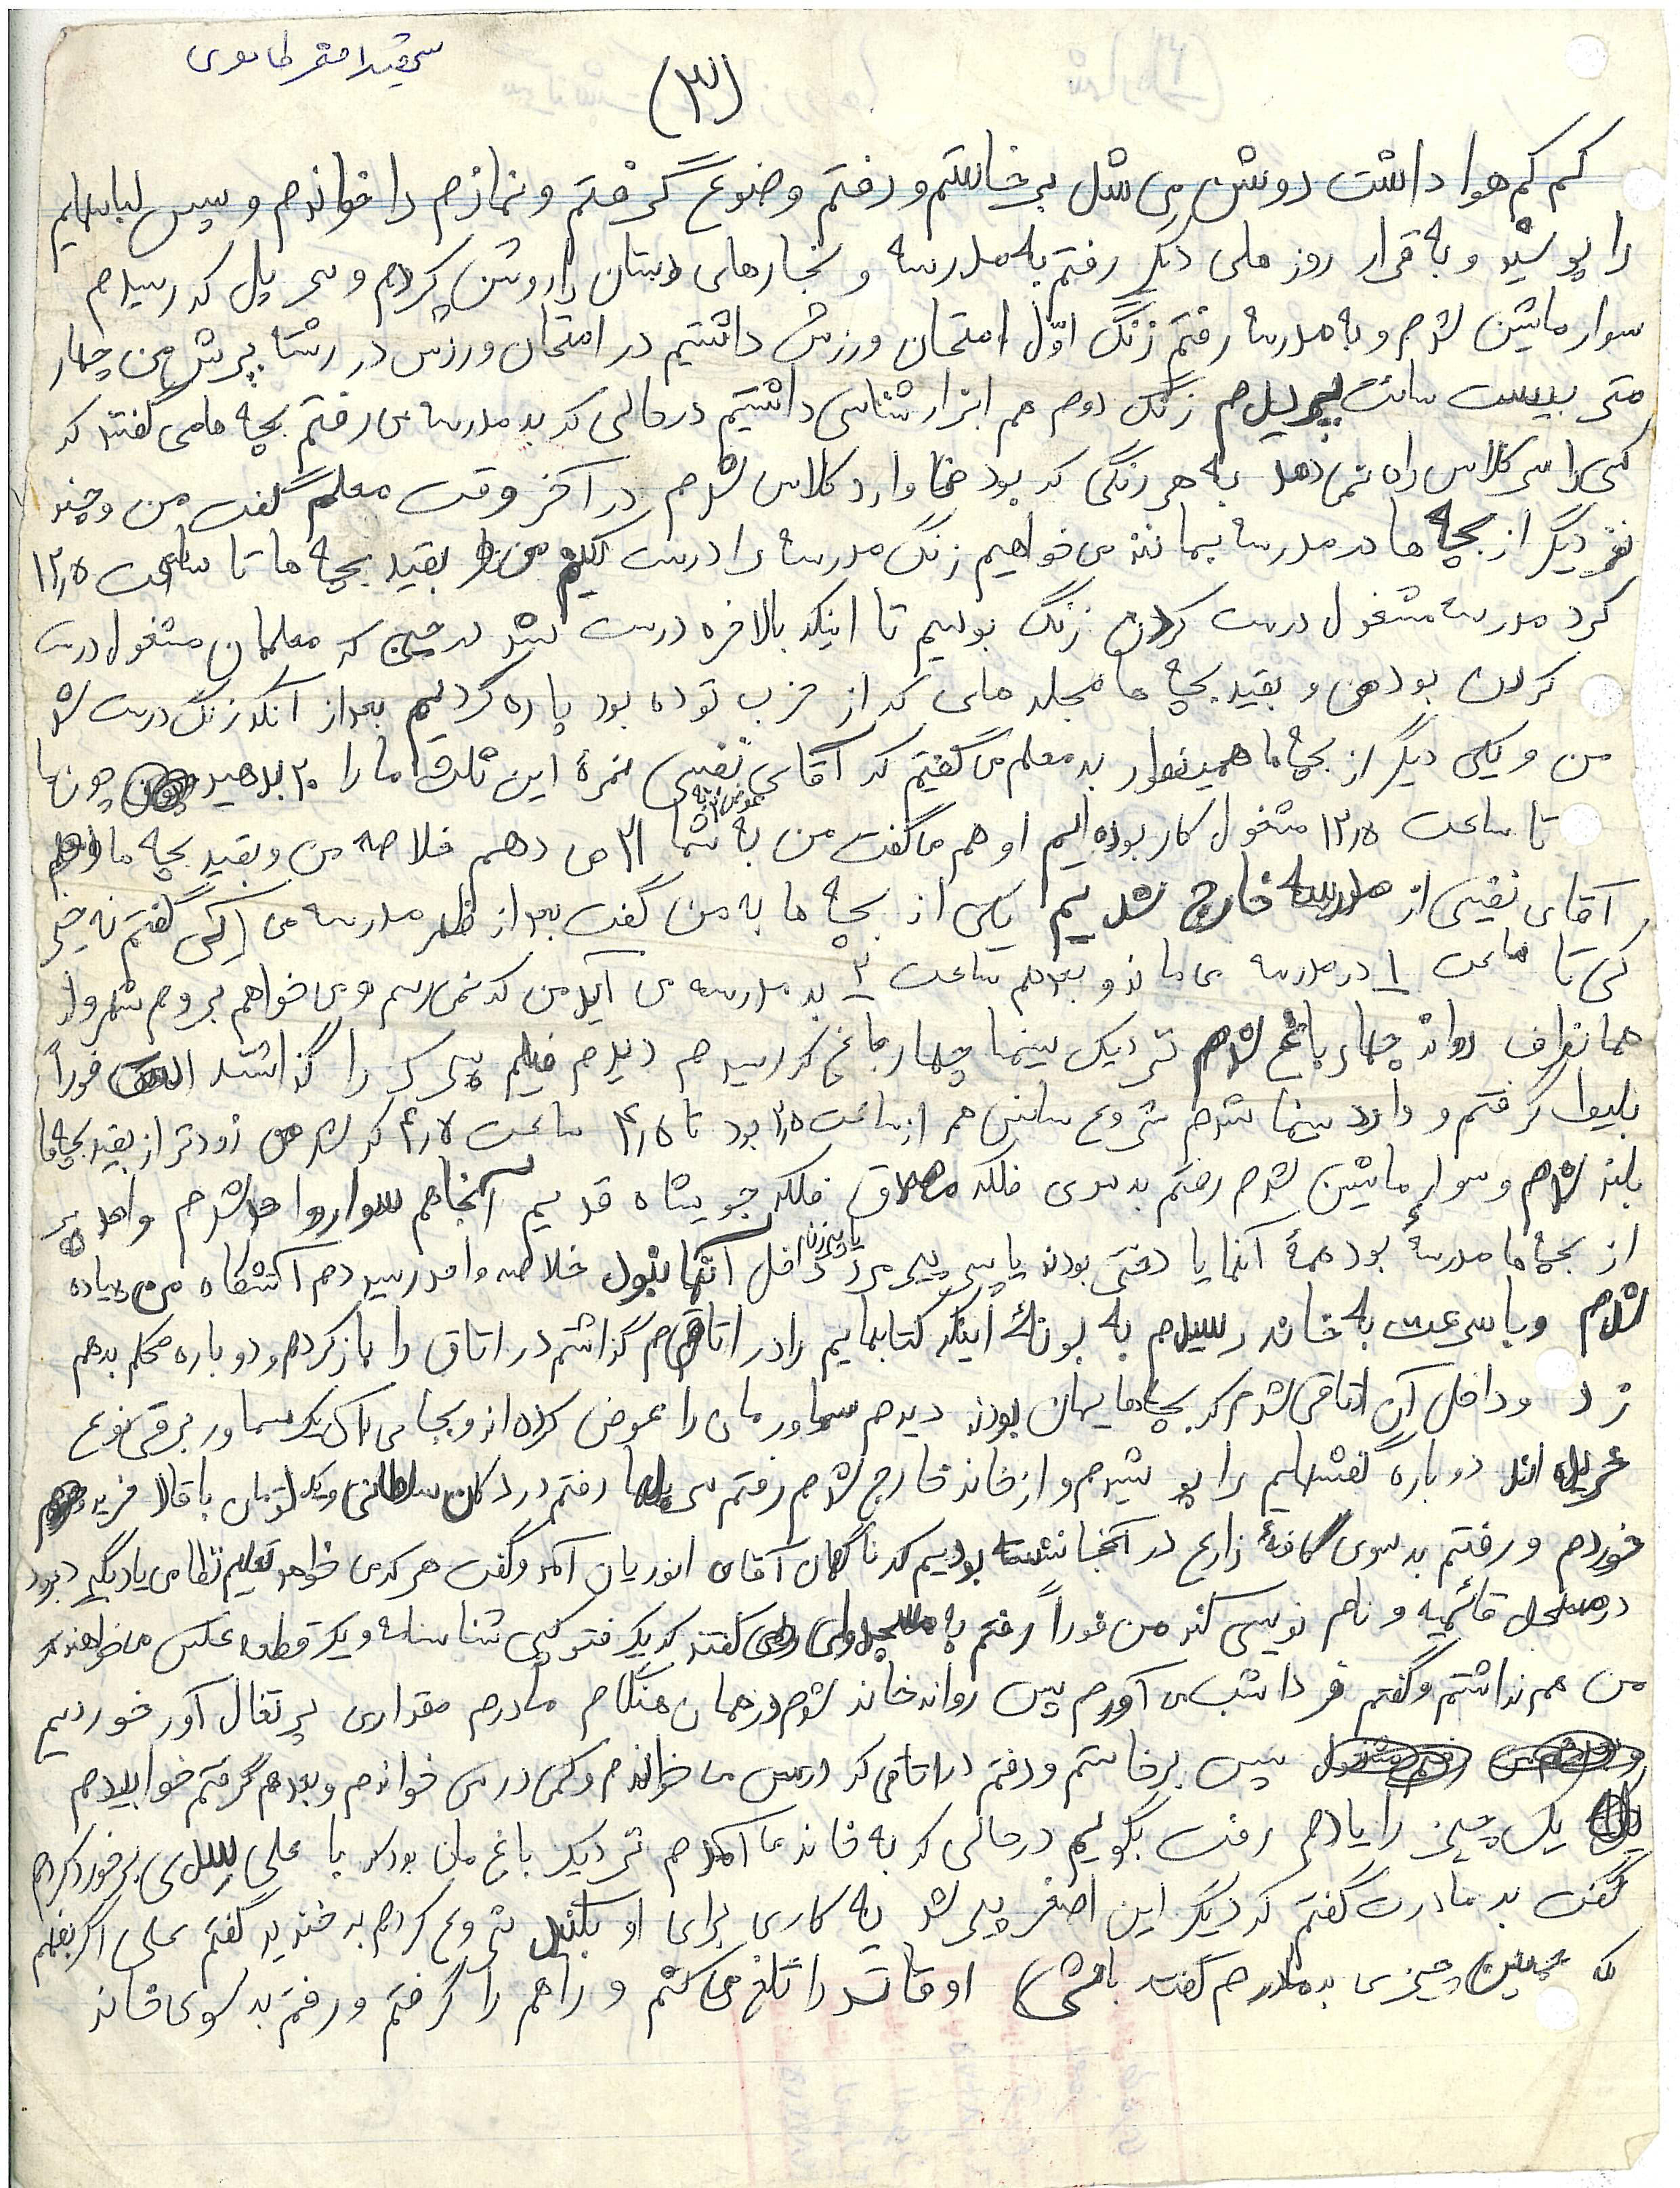 شهید اصغر طاهری
(۳)
کم کم هوا داشت روشن می شد برخاستم و رفتم وضوع گرفتم و نمازم را خواندم و سپس لباسهایم
را پوشید و به قرار روز های دیگر رفتم به مدرسه و بخارهای دبستان را روشن کردم و سر پل که رسیدم
سوار ماشین شدم و به مدرسه رفتم زنگ اوّل امتحان ورزش داشتیم در امتحان ورزش در رشته پرش من چهار
متر بیست سانت پریدم زنگ دوم هم ابزار شناسی داشتیم در حالی که به مدرسه می رفتم بچه ها می گفتند که
کسی را سر کلاس راه نمی دهد به هر زنگی که بود ما وارد کلاس شدم در آخر وقت معلم گفت من و چند
نفر دیگر از بچه ها در مدرسه بمانند می خواهیم زنگ مدرسه را درست کنیم من بقیه بچه ها تا ساعت ۱۲٫۵
کرد مدرسه مشغول درست کردن زنگ بودیم تا اینکه بالاخره درست شد در حینی که معلمان مشغول درست
کردن بود من و بقیه بچه ها مجله های که از حزب توده بود پاره کردیم بعد از آنکه زنگ درست شد
من و یکی دیگر از بچه ها همینطور به معلم می گفتیم که آقای نفیسی نمرهٔ این ثلث ما را ۲۰ بدهید چون ما
تا ساعت ۱۲٫۵ مشغول کار بوده ایم او هم ما گفت من به شما عوض ۲۰ ۲۱ می دهم خلاصه من و بقیه بچه ها و
آقای نفیسی از مدرسه خارج شدیم یکی از بچه ها به من گفت بعد از ظهر مدرسه می آیی گفتم نه خیر
کی تا ساعت ۱ در مدرسه می ماند و بعد هم ساعت ۲ به مدرسه می آید من که نمی رسم و می خواهم بروم شهر و از
همانطرف روانه چهار باغ شدم نزدیک سینما چهار باغ که رسیدم دیدم فیلم را گذاشته فوراً
بلیط گرفتم و وارد سینما شدم شروع سانس هم از ساعت ۲٫۵ بود تا ۴٫۵ ساعت ۴٫۵ که شد من زودتر از بقیه بچه ها
بلند شدم و سوار ماشین شدم رفتم به سوی فلکه فلکه جویشاه قدیم آنجا هم سوار واحد شدم واحد پر
از بچه ها مدرسهٔ بود همهٔ آنها یا دختر بودند یا پسر پیرمرد یا پیرزن داخل آنها نبود خلاصه واحد رسیدم آتشگاه من پیاده
شدم و با سرعت به خانه رسیدم به بونهٔ اینکه کتابهایم را در اتاقم گذاشتم در اتاق را باز کردم و دوباره محکم بدهم
زد و داخل آن اتاقی شدم که بچه هایمان بودند دیدم سماورمان را عوض کرده اند و بجای آن یک سماور برقی نوع
خریده اند دوباره کفشهایم را پوشیدم و از خانه خارج شدم رفتم سر پلها رفتم در دکان سلطانی و یک تومان باقالا خریدم
خوردم و رفتم به سوی کافهٔ زارع در آنجا نشسته بودیم که ناگهان آقای انوریان آمد و گفت هر که می خواهد تعلیم نظامی یاد بگیرد برود
در مسجد قائمیه و نام نویسی کند من فوراً رفتم به مسجد ولی گفتند که یک فتوکپی شناسنامه و یک قطعه عکس می خواهند که
من هم نداشتم و گفتم فردا شب می آورم پس روانه خانه شدم در همان هنگام مادرم مقداری پرتغال آورد خوردیم
سپس برخاستم و رفتم در اتاقی که درس می خواندم و کمی درس خواندم و بعد هم گرفتم خوابیدم
یک چیز را یادم رفت بگویم در حالی که به خانه ما آمدم نزدیک باغ مان بود که با علی سیدی برخورد کردم
گفت به مادرت گفتم که دیگر این اصغر پیر شد یه کاری برای او بکنید شروع کردم به خندید گفتم علی اگر بفهم
که چنین چیزی به مادرم گفته باشی) اوقات را تلخ می کنم و راهم را گرفتم و رفتم به سوی خانه